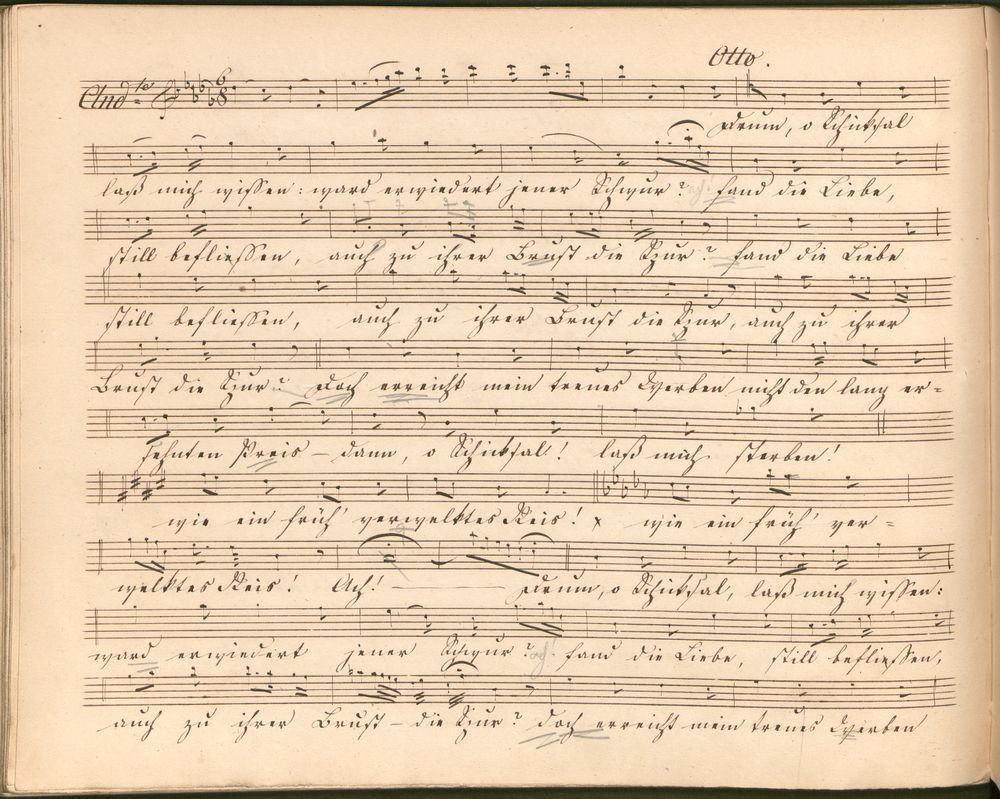 Otto.
And<sup>te</sup> 6 8
Drum, o Schicksal
laß mich wissen: ward erwiedert jener Schwur? fand die Liebe,
still beflissen, auch zu ihrer Brust die Spur? fand die Liebe
still beflissen, auch zu ihrer Brust die Spur, auch zu ihrer
Brust die Spur? Doch erreicht mein treues Werben nicht den lang er=
sehnten Preis – dann, o Schicksal! laß mich sterben!
wie ein früh' verwelktes Reis! x wie ein früh' ver=
welktes Reis! Ach! Drum, o Schicksal, laß mich wissen:
ward erwiedert jener Schwur? fand die Liebe, still beflissen,
auch zu ihrer Brust – die Spur? Doch erreicht mein treues Werben